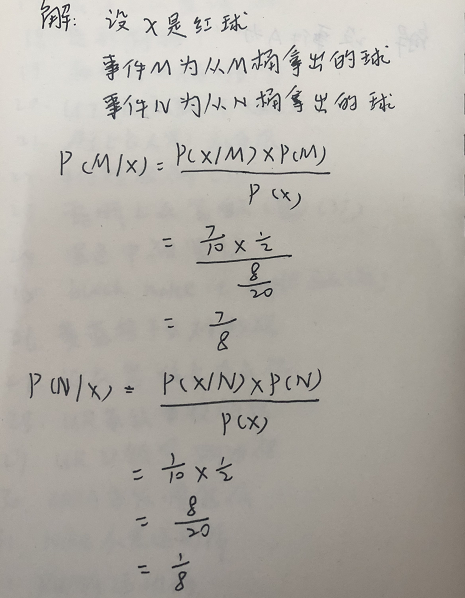 解: 设 X 是红球
事件M为从M桶拿出的球
事件N为从N桶拿出的球
P(M/X) = P(X/M)×P(M)
P(X)
= 7/10 × 1/2
8/20
= 7/8
P(N/X) = P(X/N)×P(N)
P(X)
= 1/10 × 1/2
= 8/20
= 1/8